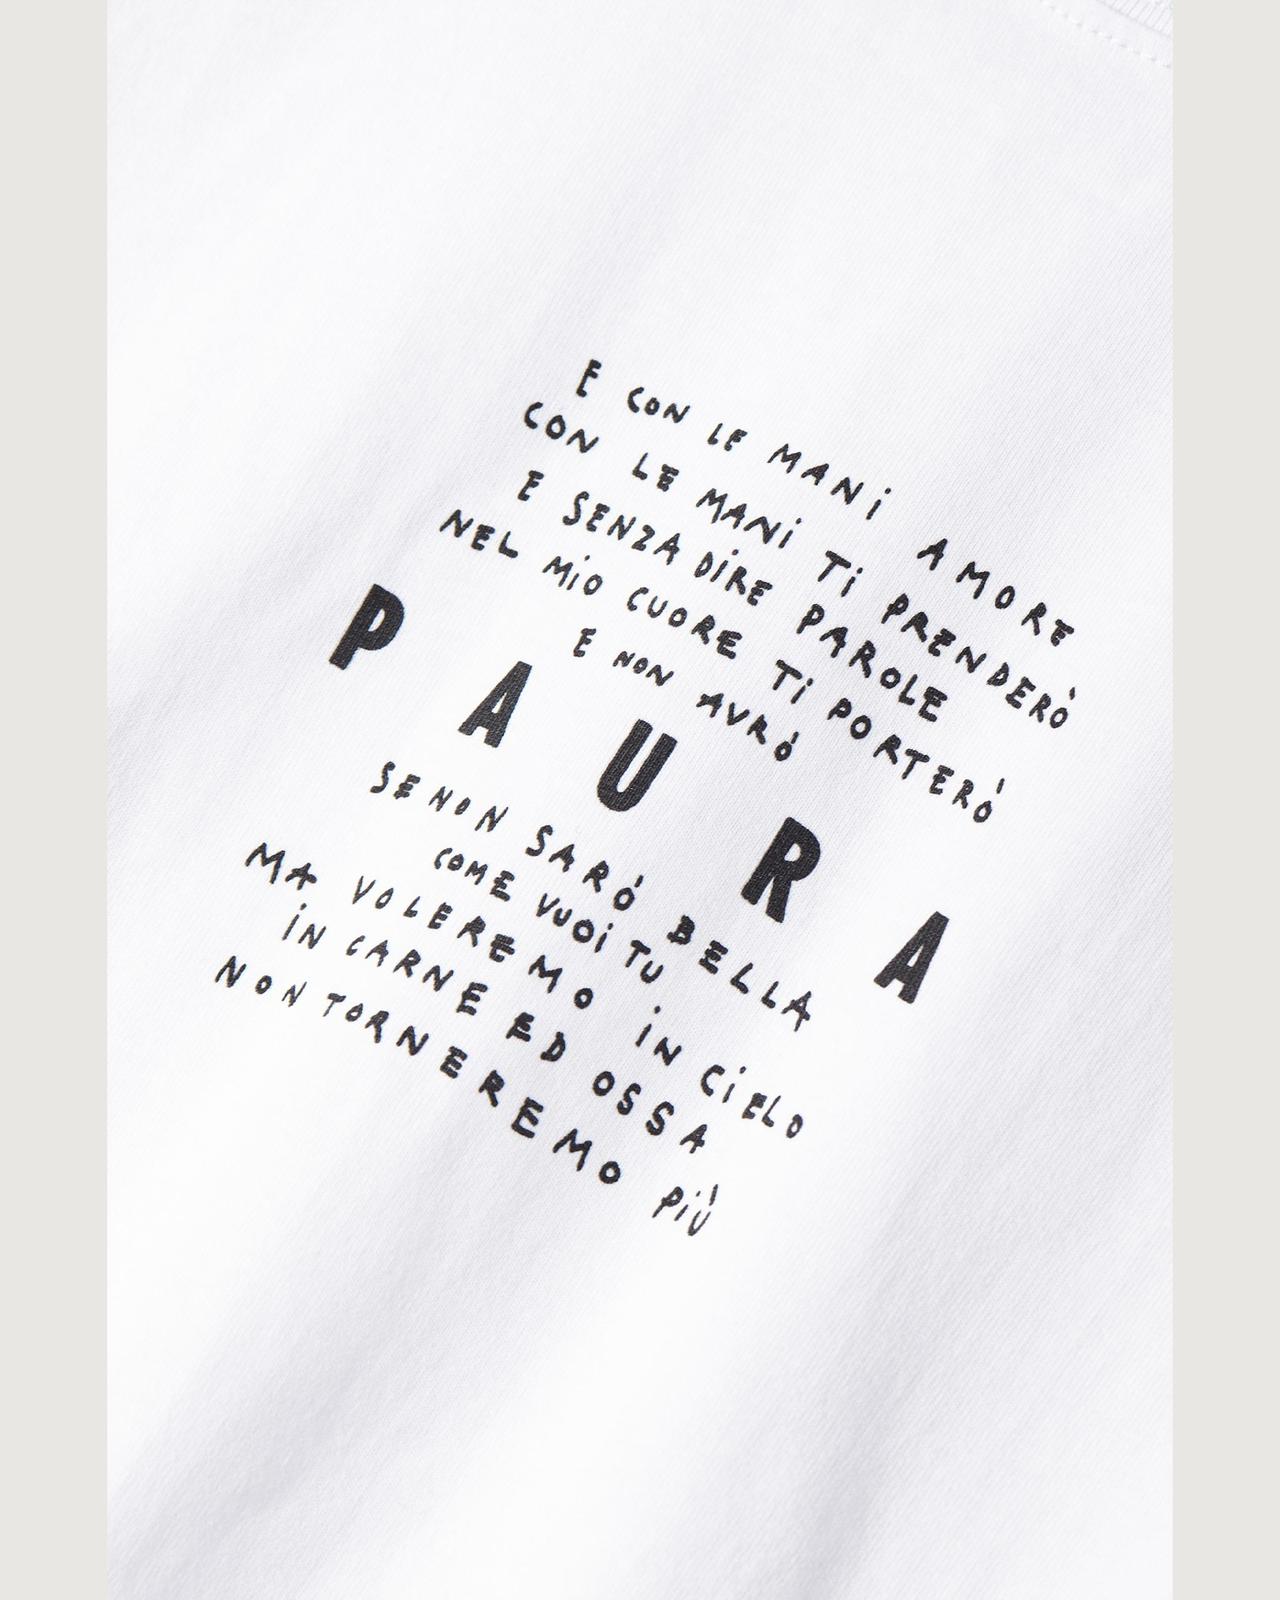 E CON LE MANi AMORE
CON LE MANi Ti PRENDERÒ
E SENZA DiRE PAROLE
NEL MiO CUORE Ti PORTERÒ
E NON AVRÒ
PAURA
SE NON SARÒ BELLA
COME VUOi TU
MA VOLEREMO iN CiELO
iN CARNE ED OSSA
NON TORNEREMO PiÙ